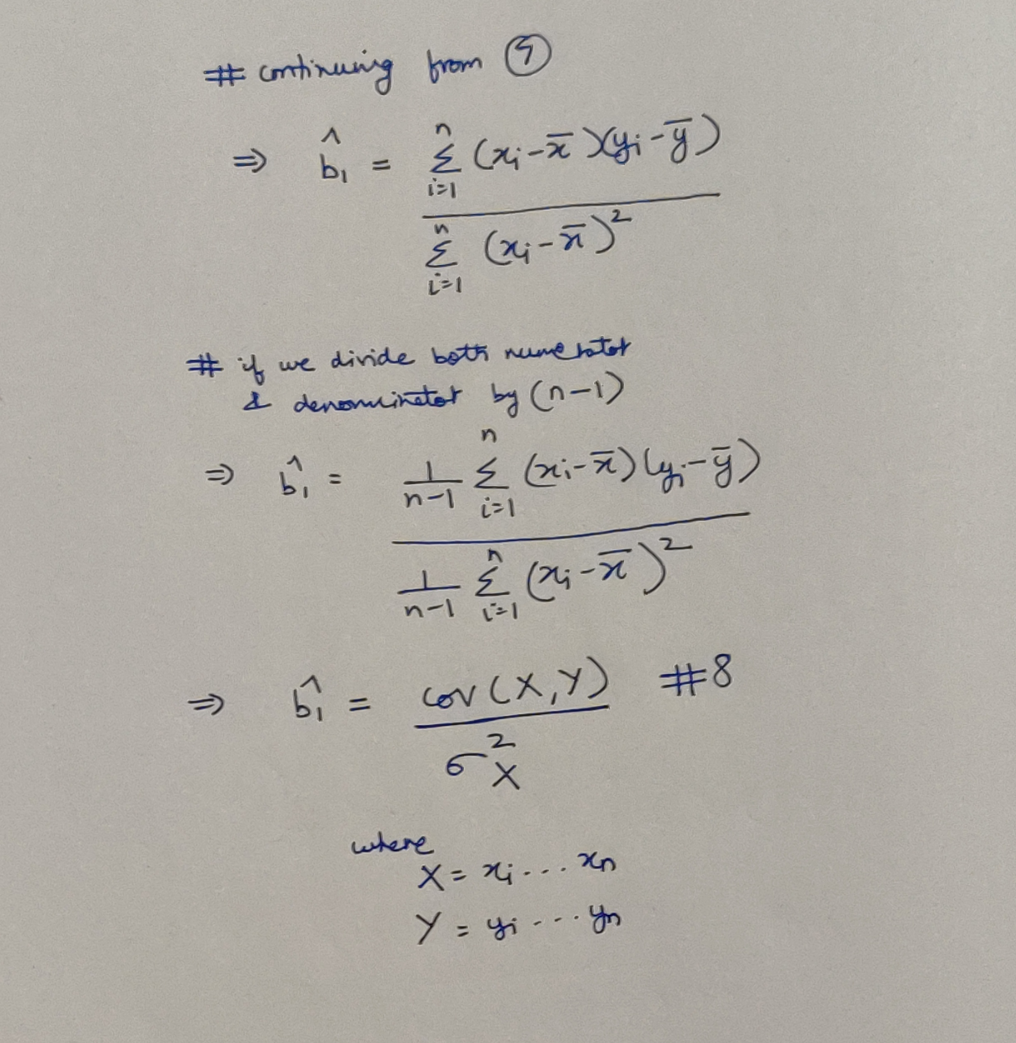 # continuing from ⑦
⇒ b̂₁ = Σⁿᵢ₌₁ (xᵢ-x̄)(yᵢ-ȳ)
Σⁿᵢ₌₁ (xᵢ-x̄)²
# if we divide both numerator
& denominator by (n-1)
⇒ b̂₁ = 1/(n-1) Σⁿᵢ₌₁ (xᵢ-x̄)(yᵢ-ȳ)
1/(n-1) Σⁿᵢ₌₁ (xᵢ-x̄)²
⇒ b̂₁ = cov(X,Y) #8
σ²X
where
X = xᵢ... xₙ
Y = yᵢ ... yₙ